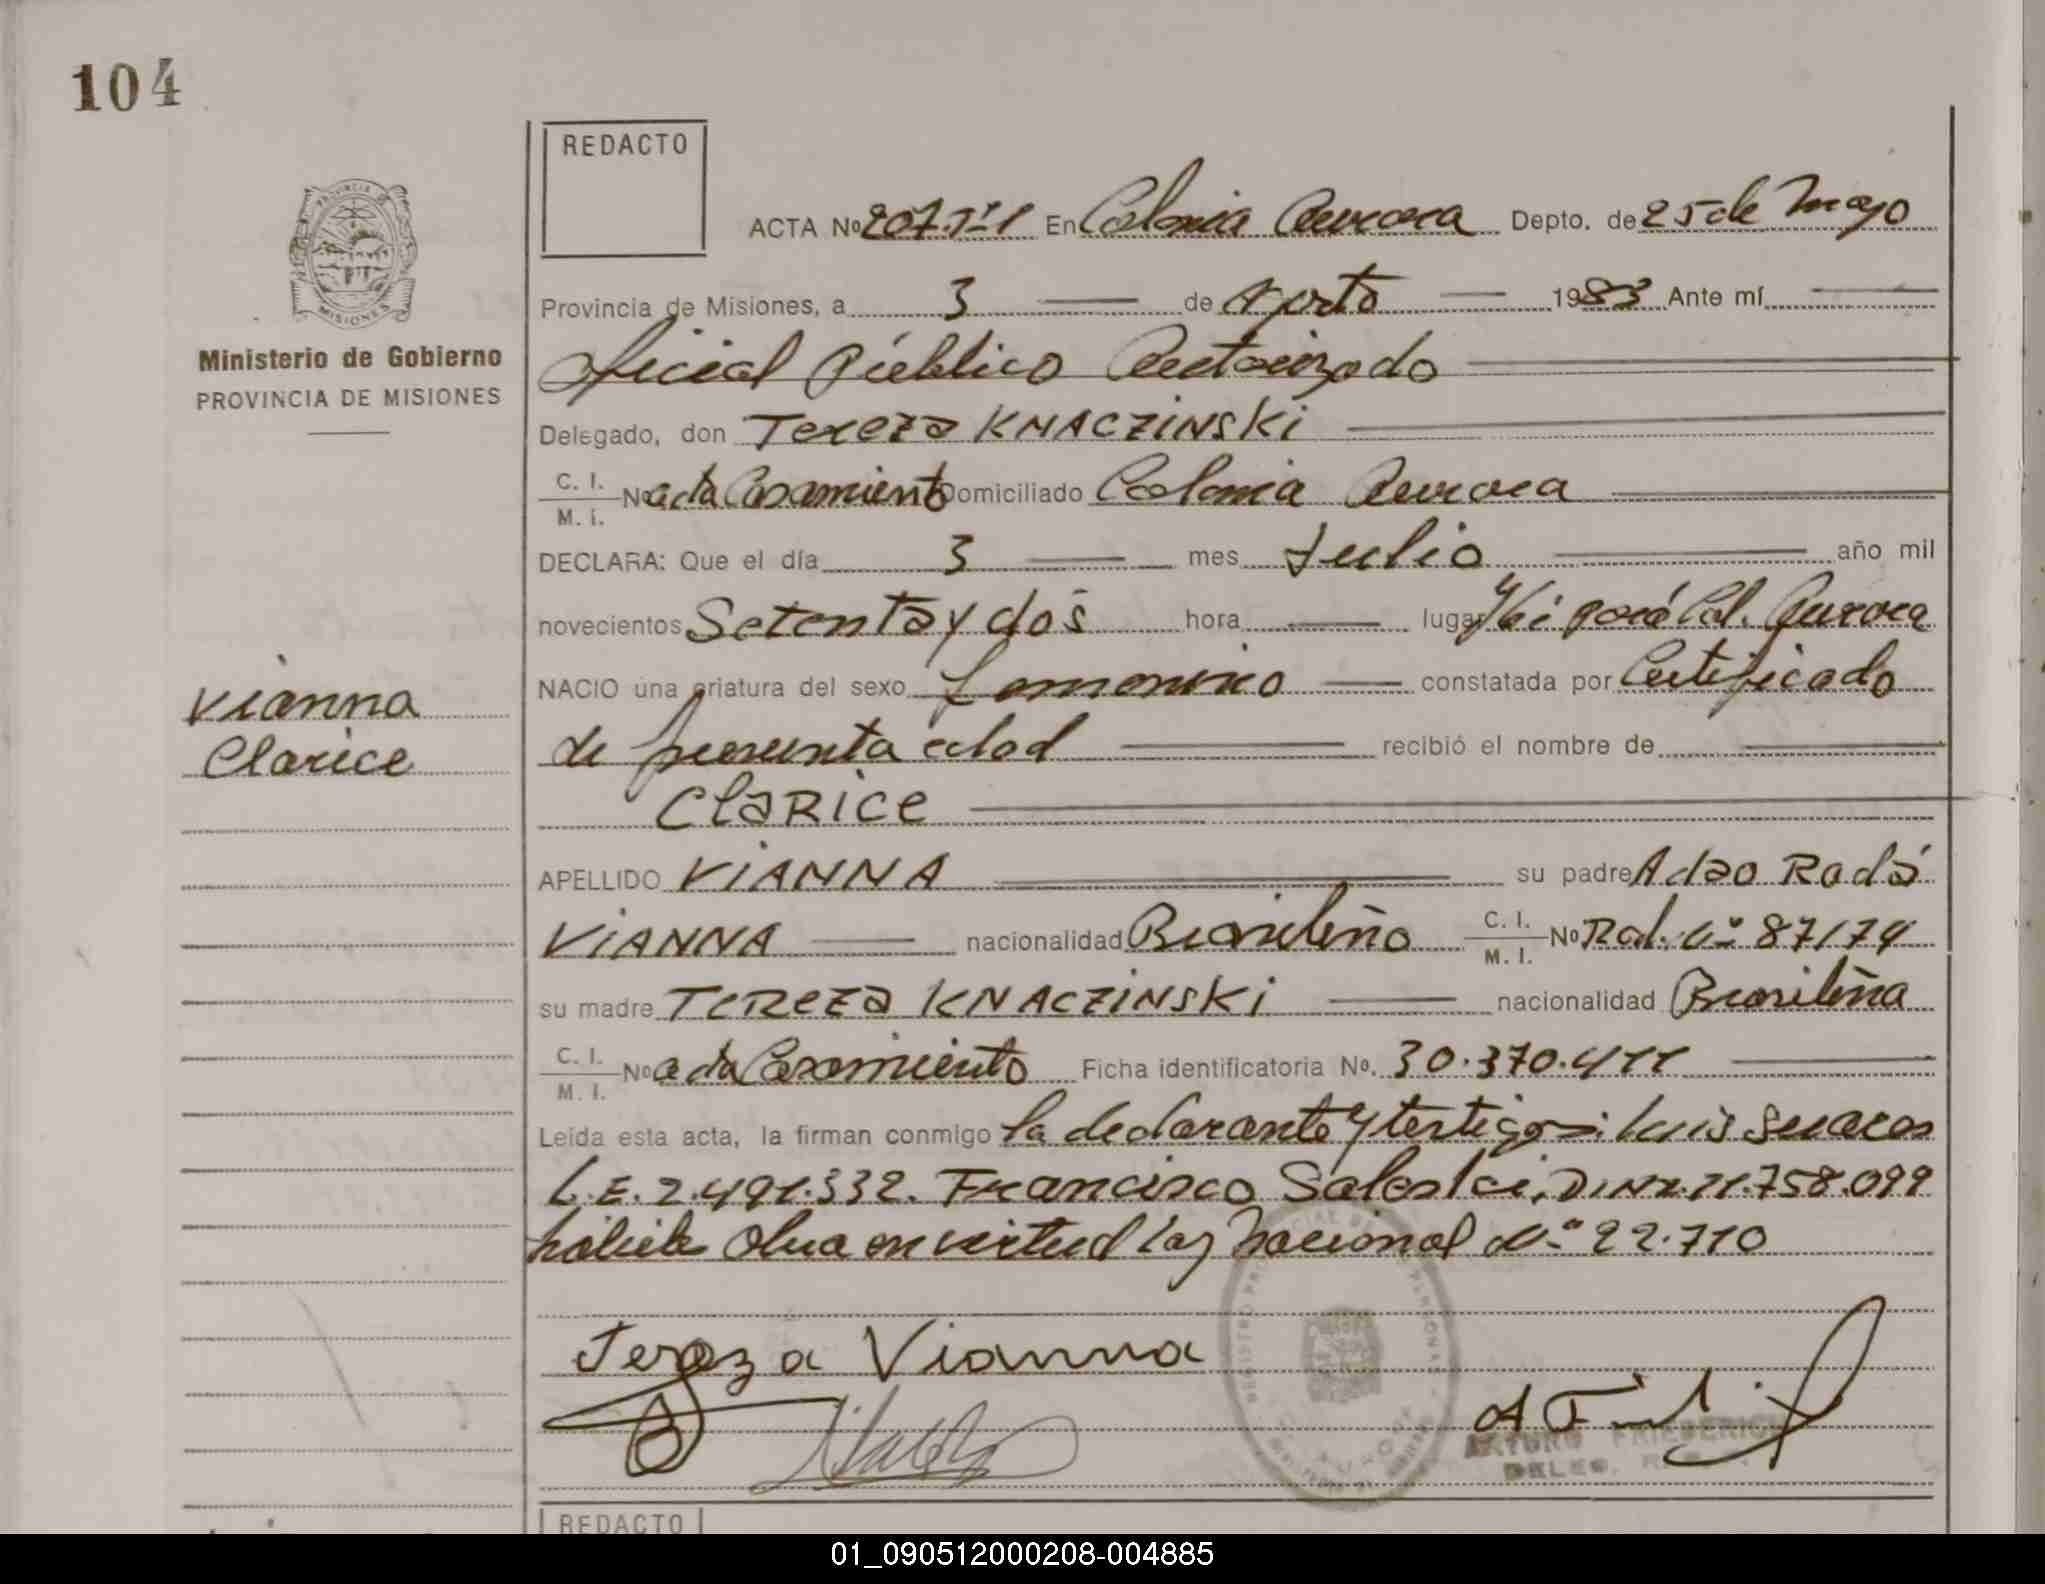 104
REDACTO
ACTA Nº 207.T=1 En Colonia Aurora Depto. de 25 de Mayo
Provincia de Misiones, a 3 de Agosto 1983 Ante mí
Oficial Público Autorizado
Ministerio de Gobierno
PROVINCIA DE MISIONES
Delegado, don Tereza KNACZINSKi
C. I. M. I. Nº acta Casamiento Domiciliado Colonia Aurora
DECLARA: Que el día 3 mes Julio año mil
novecientos Setenta y dos hora lugar Col. Aurora
NACIO una criatura del sexo femenino constatada por Certificado
de presunta edad recibió el nombre de
Vianna
Clarice
CLARICE
APELLIDO VIANNA su padre Adao Rodá
VIANNA nacionalidad Brasileño C. I. M. I. Nº Rad. nº 87174
su madre TEREZA KNACZINSKi nacionalidad Brasileña
C. I. M. I. Nº acta Casamiento Ficha identificatoria Nº. 30.370.411
Leída esta acta, la firman conmigo la declarante y testigos: Luis Suares
L.E. 2.491.332. Francisco Saleski, DNI 11.758.099
habiles Obra en virtud Ley Nacional Nº 22.710
Tereza Vianna
ARTURO FRIEDERICH
DELEG. R.
REDACTO
01_090512000208-004885